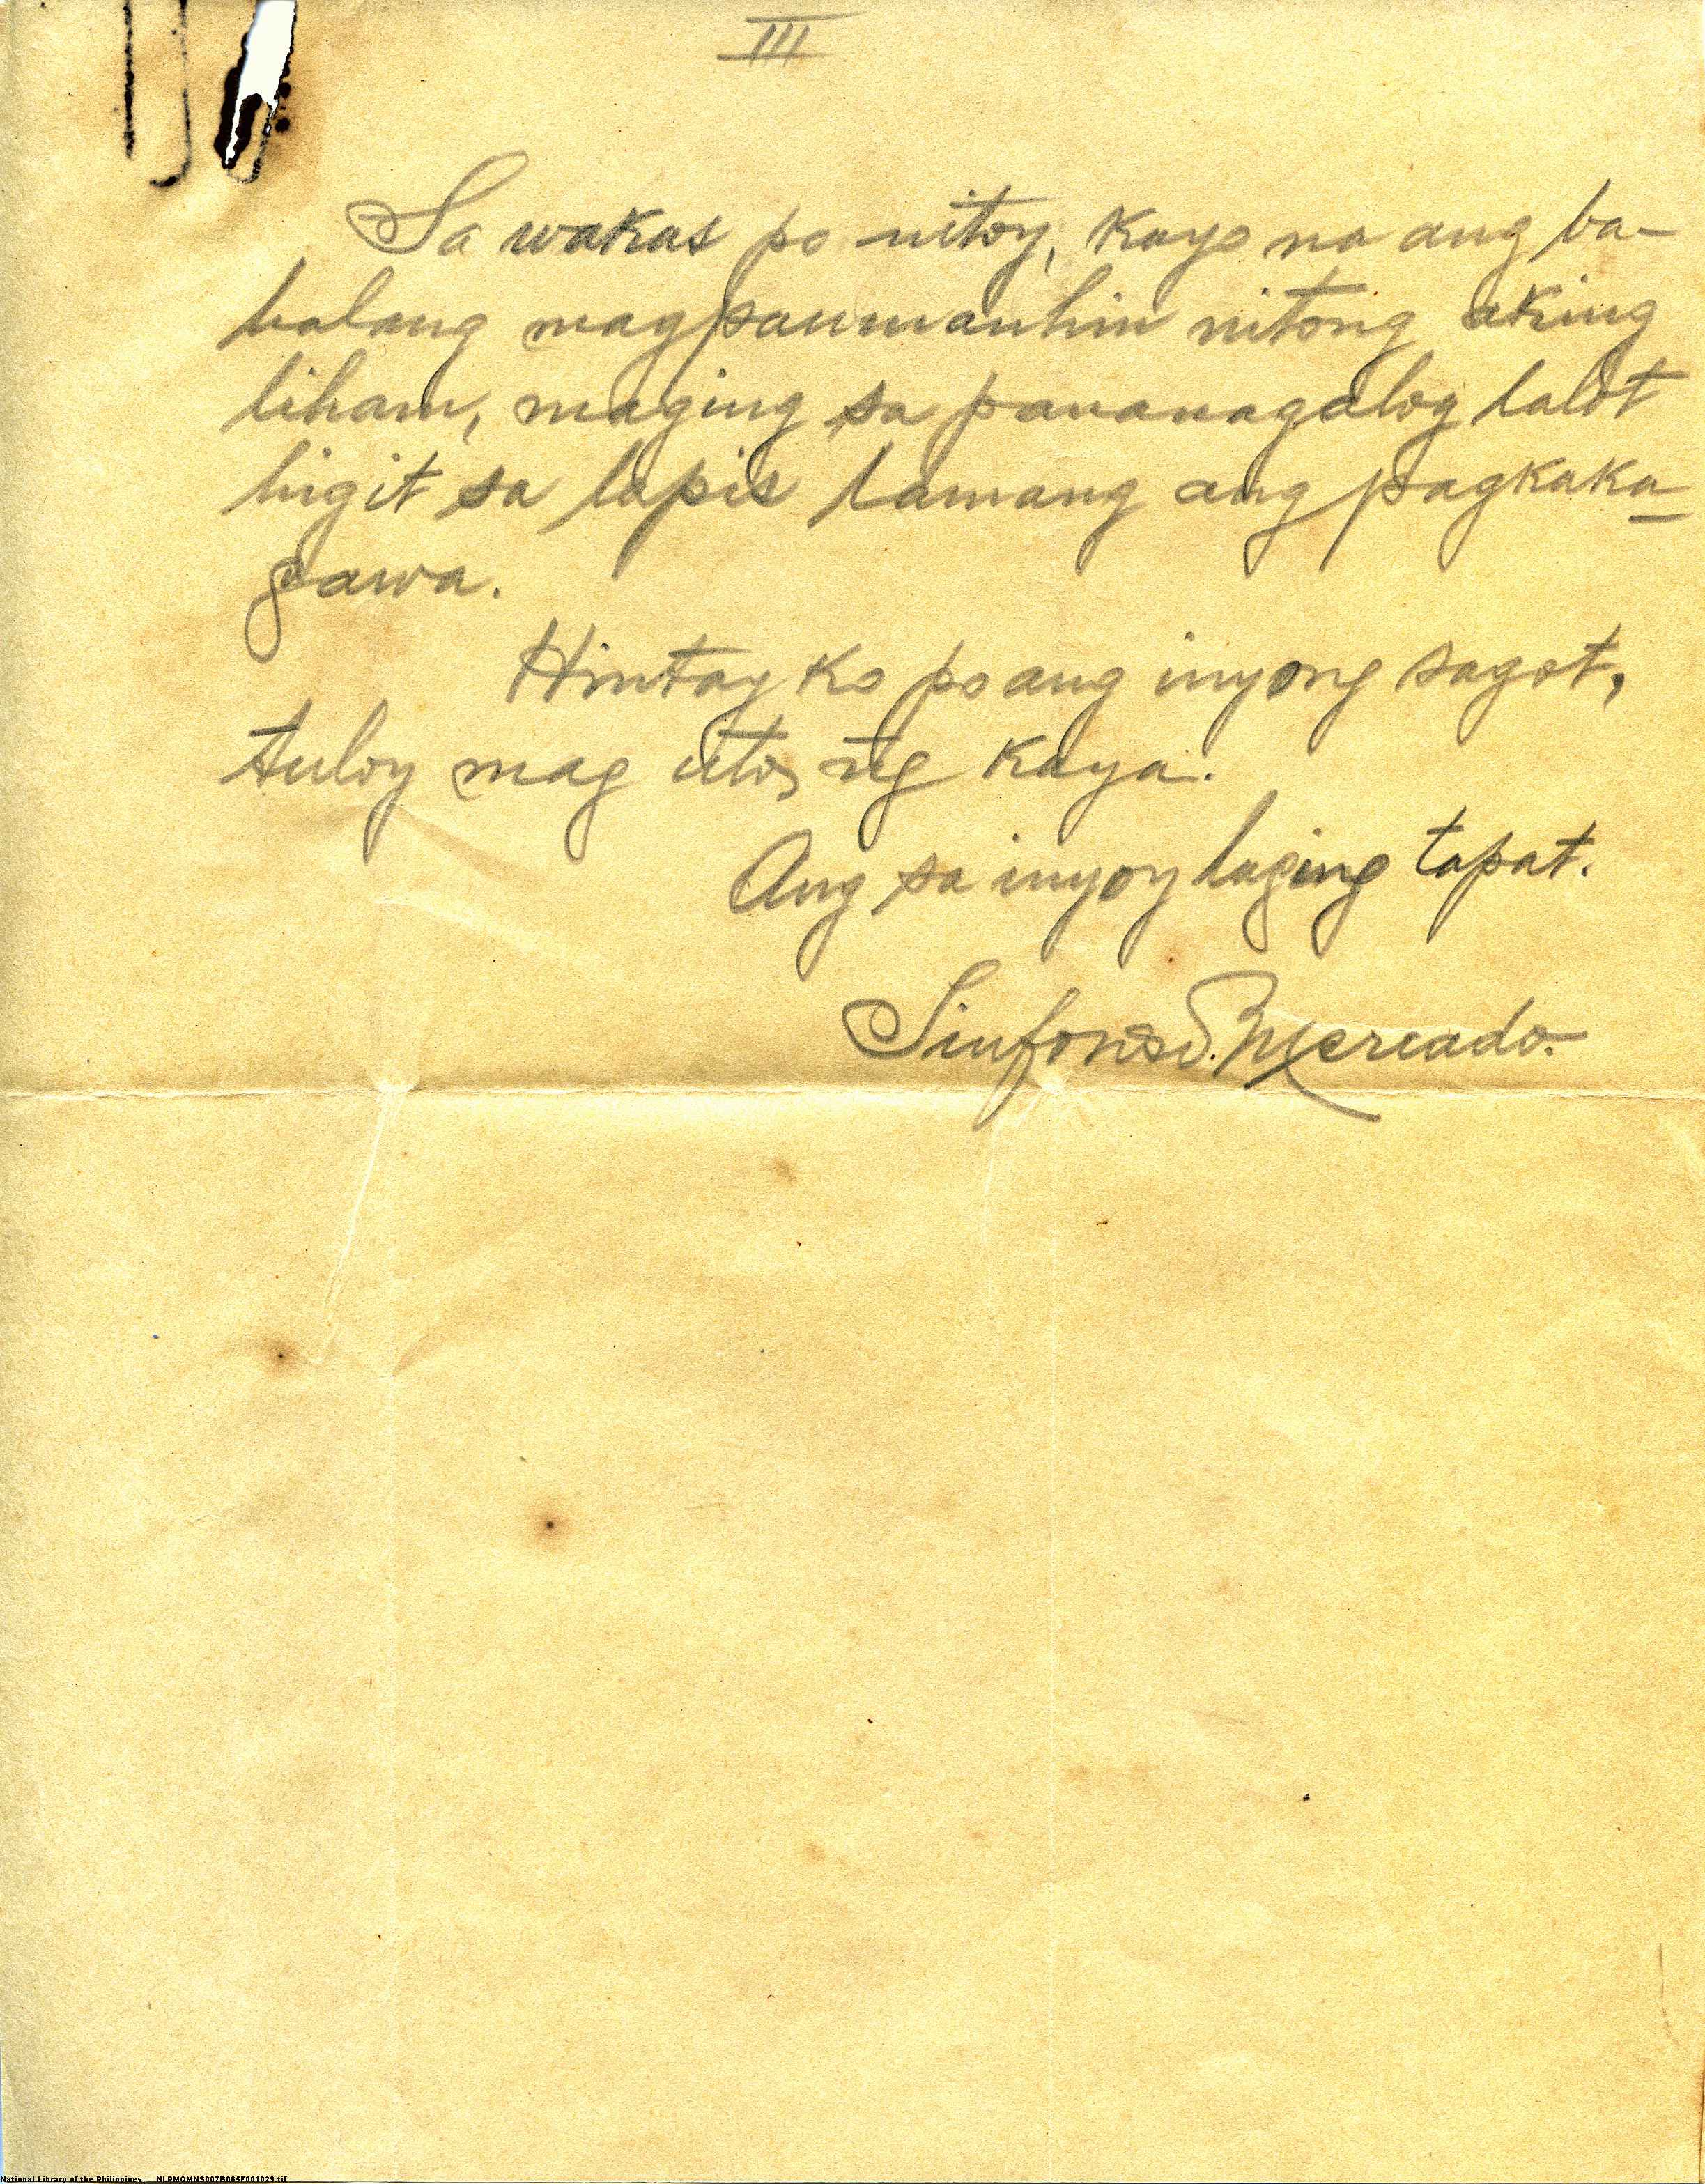 III
Sa wakas po nitoy, kayo na ang ba-
balang magpaumanhin nitong aking
liham, maging sa pananagalog lalot
higit sa lapis lamang ang pagkaka-
gawa.
Hintay ko po ang inyong sagot,
tuloy mag utos ng kaya.
Ang sa inyoy laging tapat.
Sinforoso. Mercado.
National Library of the Philippines NLPMQMNS007B066F001029.tif